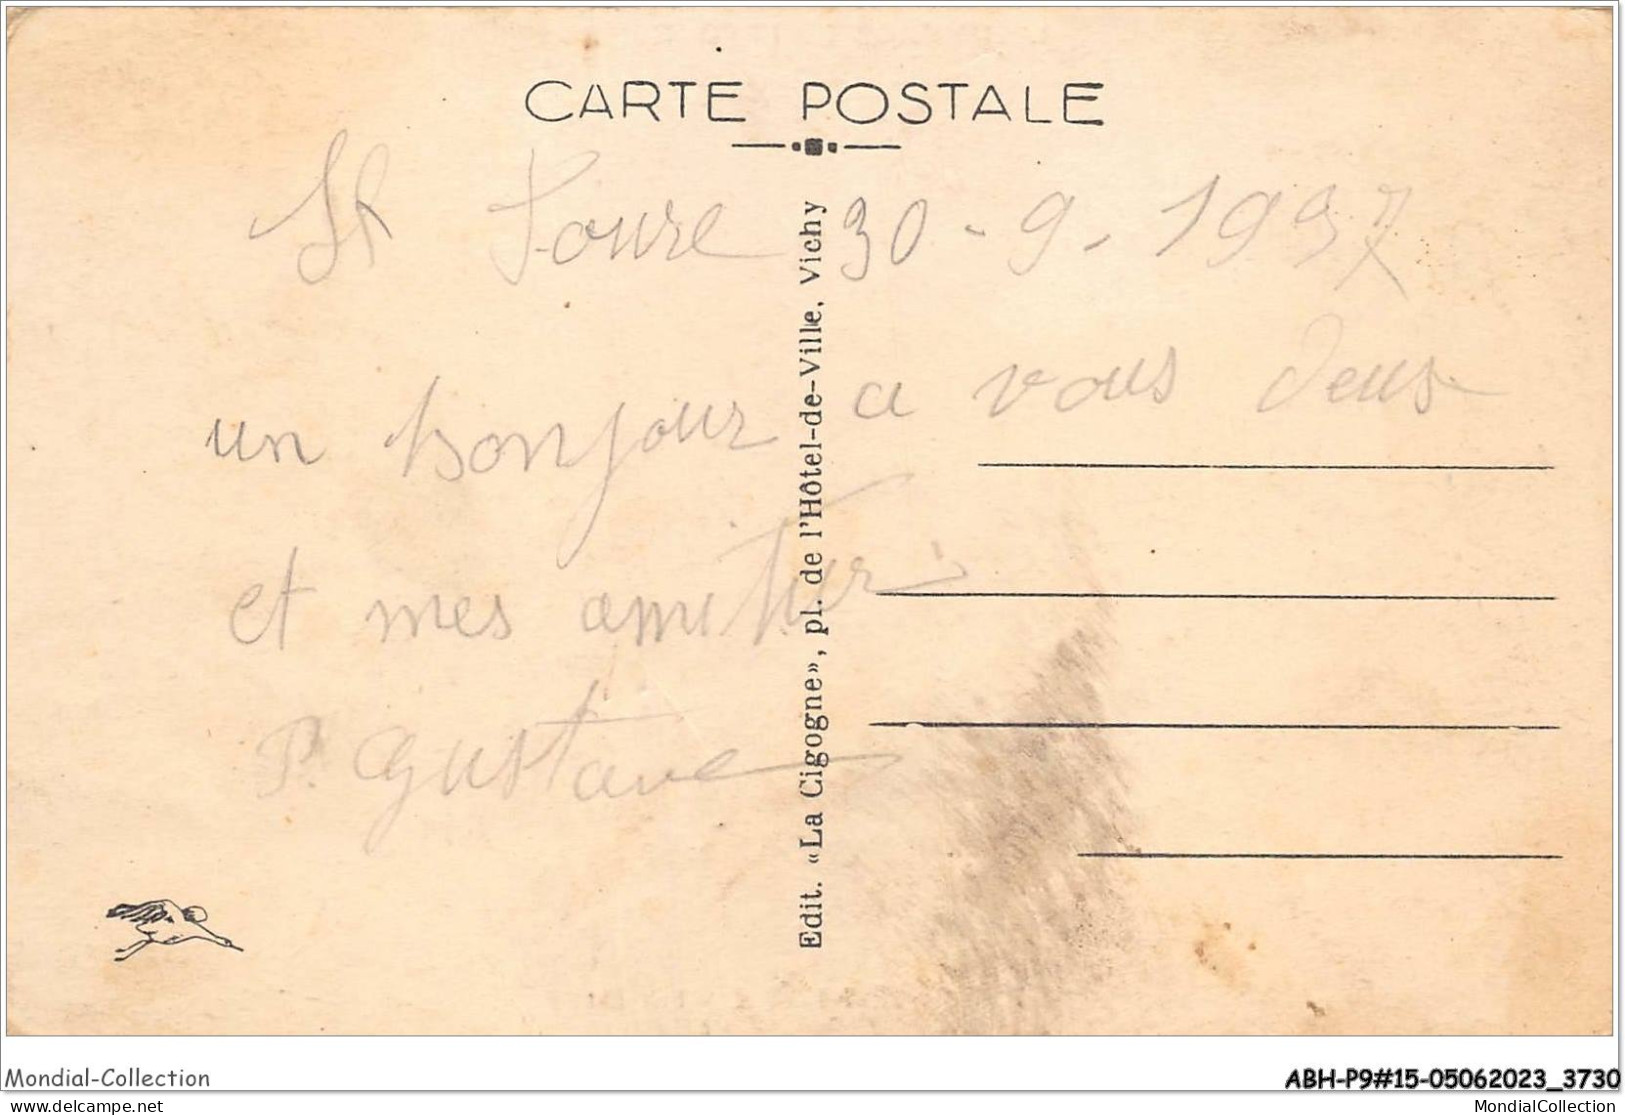 CARTE POSTALE
St 30-9-1937
un bonjour a vous deux
et mes amitier
P. Gustave
Edit. «La Cigogne», pl. de l'Hôtel-de-Ville, Vichy
Mondial-Collection
ABH-P9#15-05062023_3730
MondialCollection
www.delcampe.net
MondialCollection